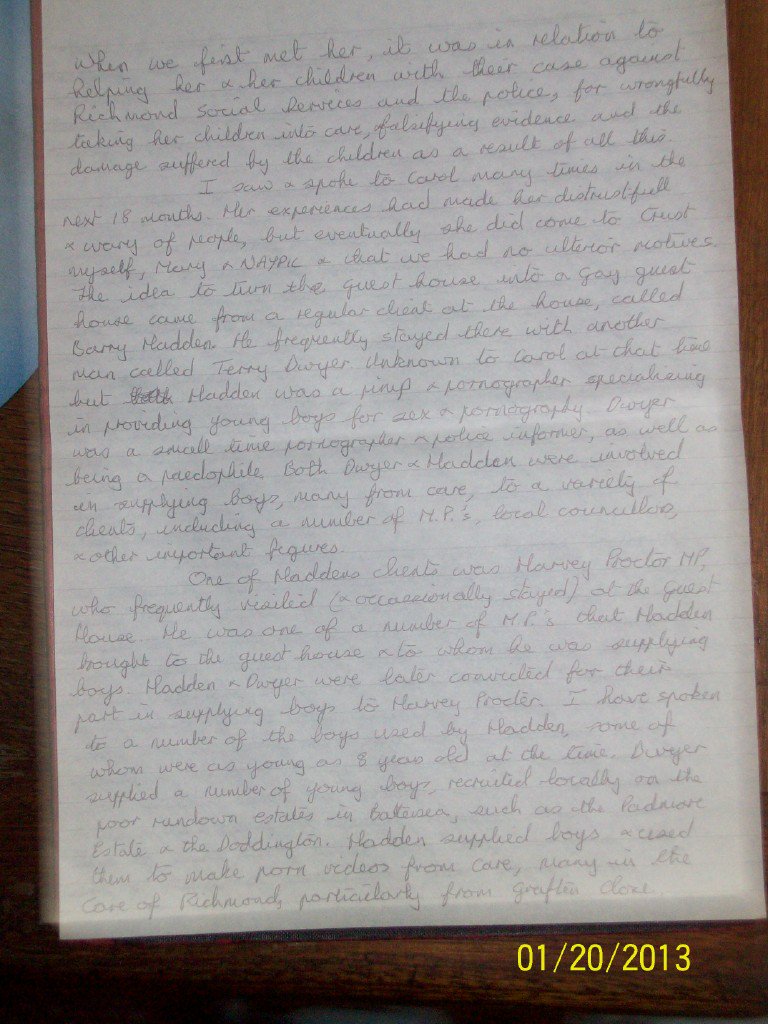 When we first met her, it was in relation to
helping her & her children with their case against
Richmond Social Services and the police, for wrongfully
taking her children into care, falsifying evidence and the
damage suffered by the children as a result of all this.
I saw & spoke to Carol many times in the
next 18 months. Her experiences had made her distrustfull
& wary of people, but eventually she did come to trust
myself, Mary & NAYPIC & that we had no ulterior motives.
The idea to turn the guest house into a gay guest
house came from a regular client at the house, called
Barry Haddon. He frequently stayed there with another
man called Terry Dwyer. Unknown to Carol at that time
but Haddon was a pimp & pornographer specialising
in providing young boys for sex & pornography. Dwyer
was a small time pornographer & police informer, as well as
being a paedophile. Both Dwyer & Haddon were involved
in supplying boys, many from care, to a variety of
clients, including a number of M.P.'s, local councillors,
& other important figures.
One of Haddens clients was Harvey Proctor MP,
who frequently visited (& occassionally stayed) at the Guest
House. He was one of a number of M.P.'s that Hadden
brought to the guest house & to whom he was supplying
boys. Hadden & Dwyer were later convicted for their
part in supplying boys to Harvey Procter. I have spoken
to a number of the boys used by Hadden, some of
whom were as young as 8 years old at the time. Dwyer
supplied a number of young boys, recruited locally on the
poor rundown estates in Battersea, such as the Padmore
Estate & the Doddington. Hadden supplied boys & used
them to make porn videos from care, many in the
care of Richmond, particularly from Grafton Close.
01/20/2013